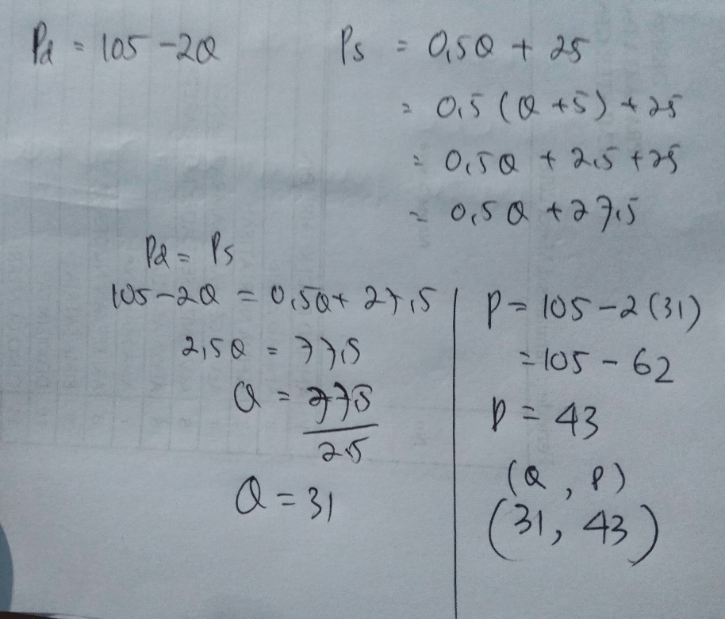 Pd = 105 - 2Q
Ps = 0,5Q + 25
= 0,5 (Q + 5) + 25
= 0,5Q + 2,5 + 25
= 0,5Q + 27,5
Pd = Ps
105 - 2Q = 0,5Q + 27,5
2,5Q = 77,5
Q = 77,5
2,5
Q = 31
P = 105 - 2(31)
= 105 - 62
P = 43
(Q, P)
(31, 43)